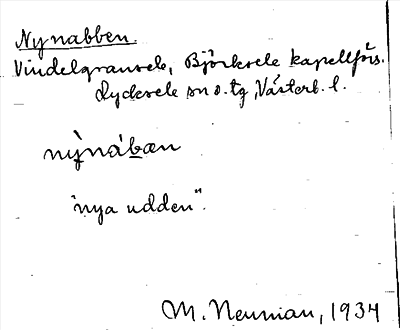 Nynabben.
Vindelgransele, Björksele kapellförs.
Lycksele sn o. tg, Västerb. l.
nỳnábæn
"nya udden".
M. Neuman, 1934